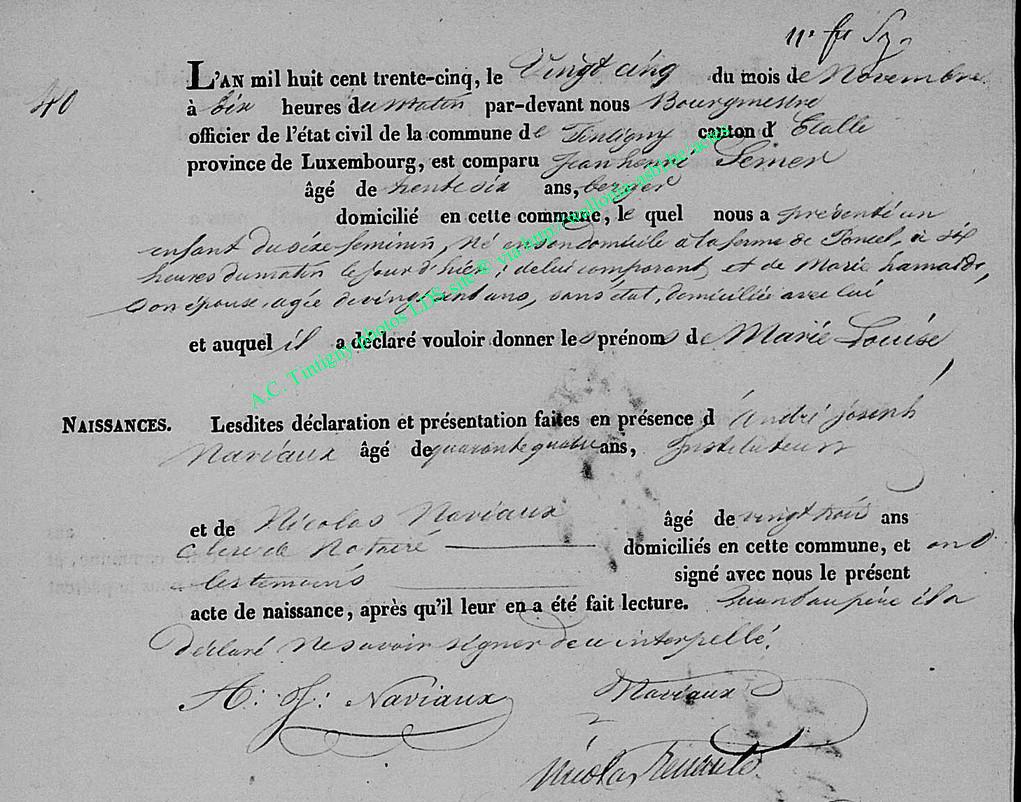 40
L'AN mil huit cent trente-cinq, le Vingt cinq du mois de Novembre
à dix heures du matin par-devant nous Bourgmestre
officier de l'état civil de la commune de Tintigny canton d'Etalle
province de Luxembourg, est comparu Jean henré Semer
âgé de trente six ans, berger
domicilié en cette commune, le quel nous a présenté un
enfant du sexe feminin, né en son domicile à la ferme de Poncel, à six
heures du matin le jour d'hier, de lui comparant et de Marie hamarde,
son épouse, agée de vingt sept ans, sans état, domiciliée avec lui
et auquel il a déclaré vouloir donner les prénoms de Marie Louise
NAISSANCES. Lesdites déclaration et présentation faites en présence d'André joseph
Naviaux âgé de quarante quatre ans, Instituteur
et de Nicolas Naviaux âgé de vingt trois ans
Clerc de Notaire domiciliés en cette commune, et ont
les temoins signé avec nous le présent
acte de naissance, après qu'il leur en a été fait lecture. quant au père il a
déclaré ne savoir signer de ce interpellé.
A: J: Naviaux Naviaux
Nicolas
A.C. Tintigny photos LDS, site © via http://wallonia-asbl.be/actes